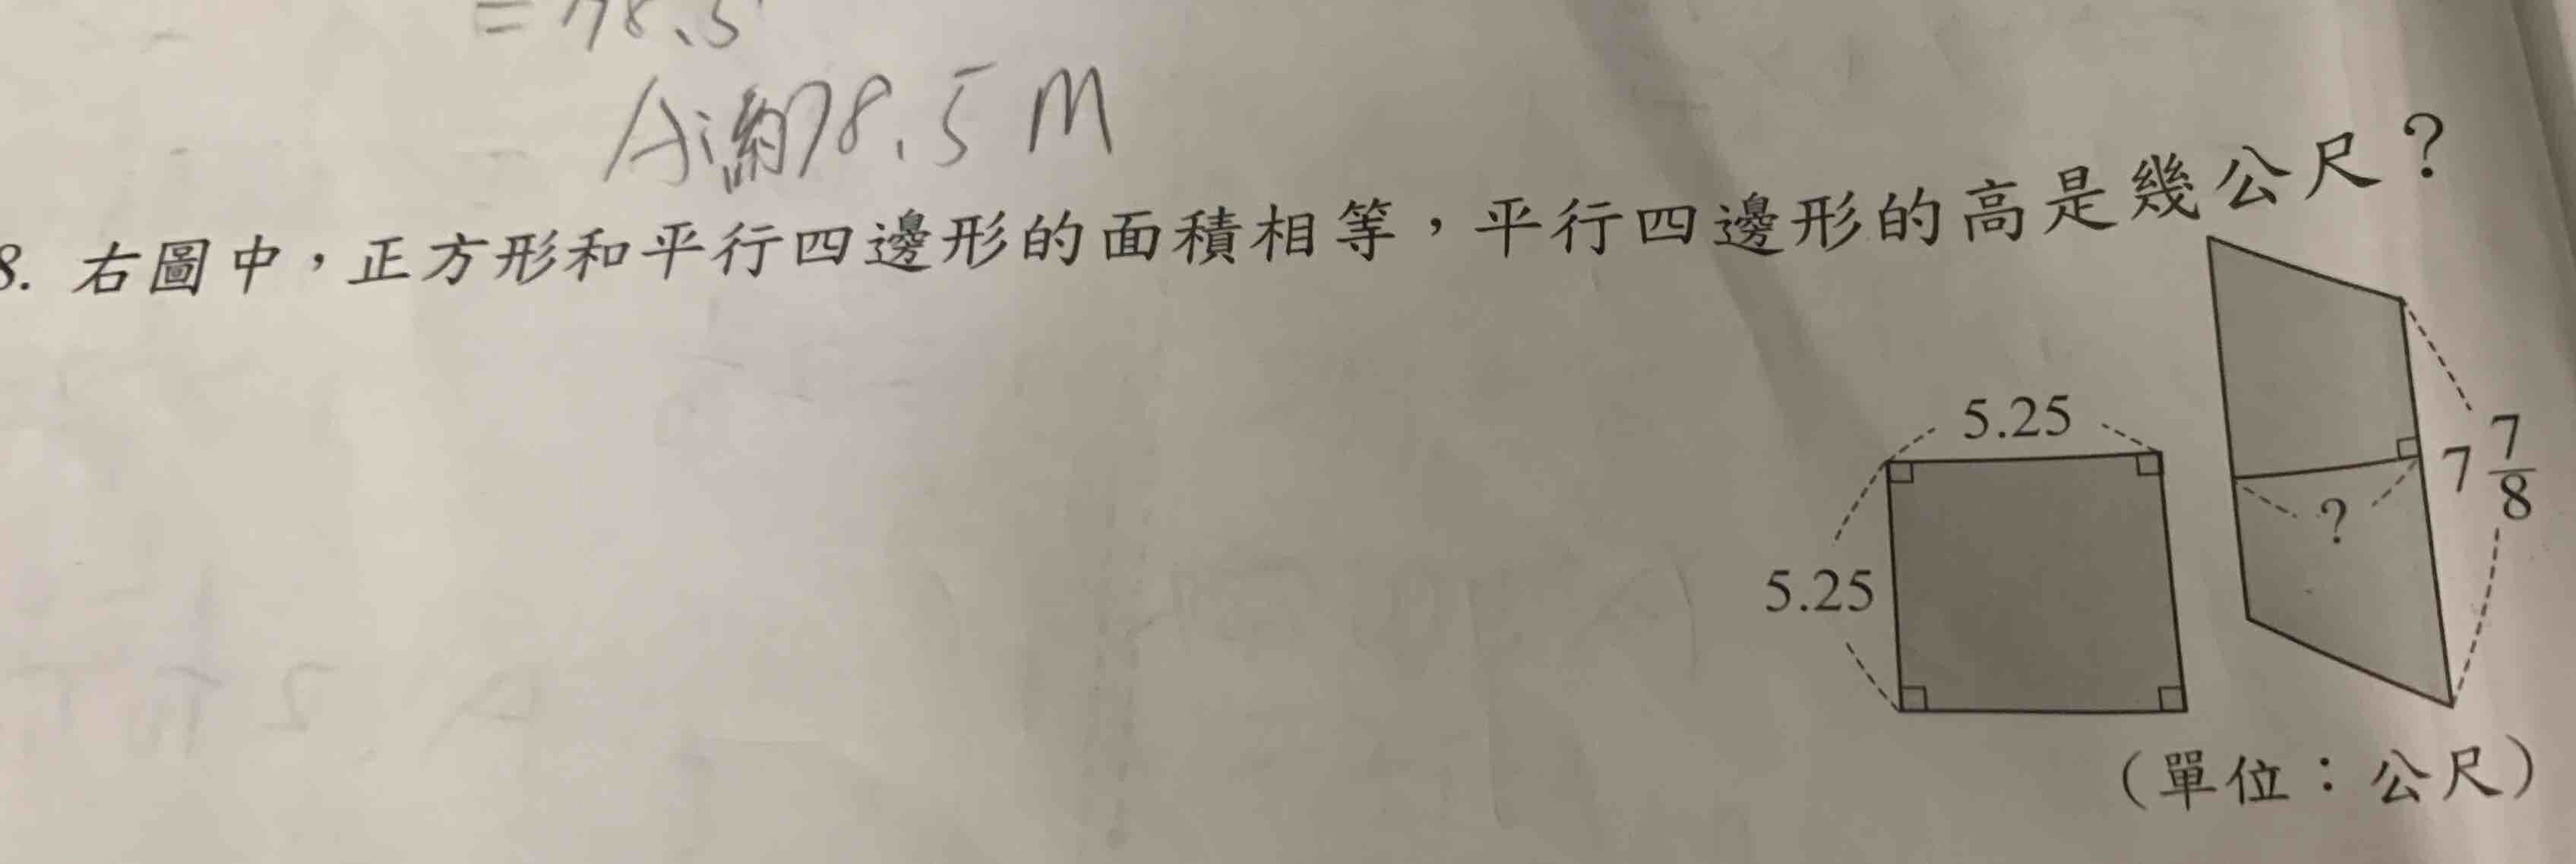 = 78.5
A:約78.5 M
8. 右圖中，正方形和平行四邊形的面積相等，平行四邊形的高是幾公尺？
5.25
5.25
7 7/8
?
（單位：公尺）